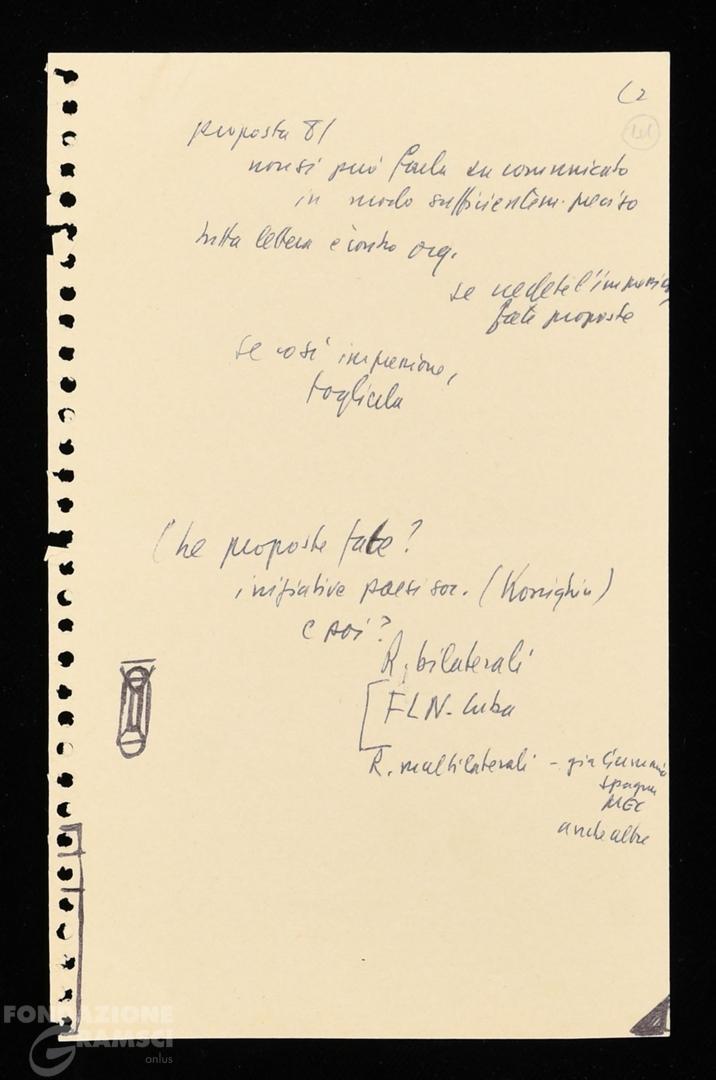 proposta 81
non si può farla su comunicato
in modo sufficientem. preciso
tutta lettera è contro org.
se vedete l'impressio
fate proposte
se così impressione,
toglierla
Che proposte fate?
iniziative paesi soc. (Kossighin)
e poi?
R. bilaterali
FLN - Cuba
R. multilaterali - già Germania
Spagna
MEC
anche altre
FONDAZIONE
GRAMSCI
onlus